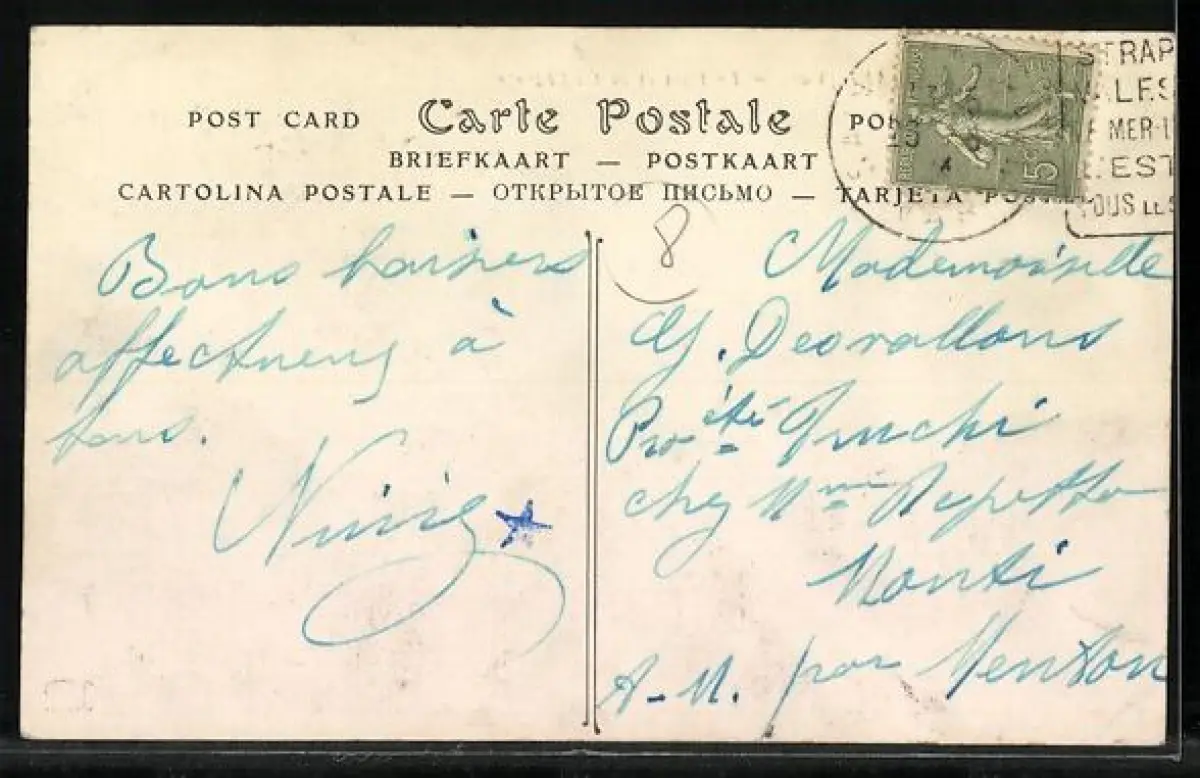 POST CARD Carte Postale PO
BRIEFKAART — POSTKAART
CARTOLINA POSTALE — ОТКРЫТОЕ ПИСЬМО — TARJETA POSTAL
STRAP
LES
MER-L
EST
TOUS LES
15c
8
Bons baisers
affectueux à
tous.
Ninie
Mademoiselle
G. Desvallons
Pro été
chez Mme Repetto
Monti
A-M. par Menton